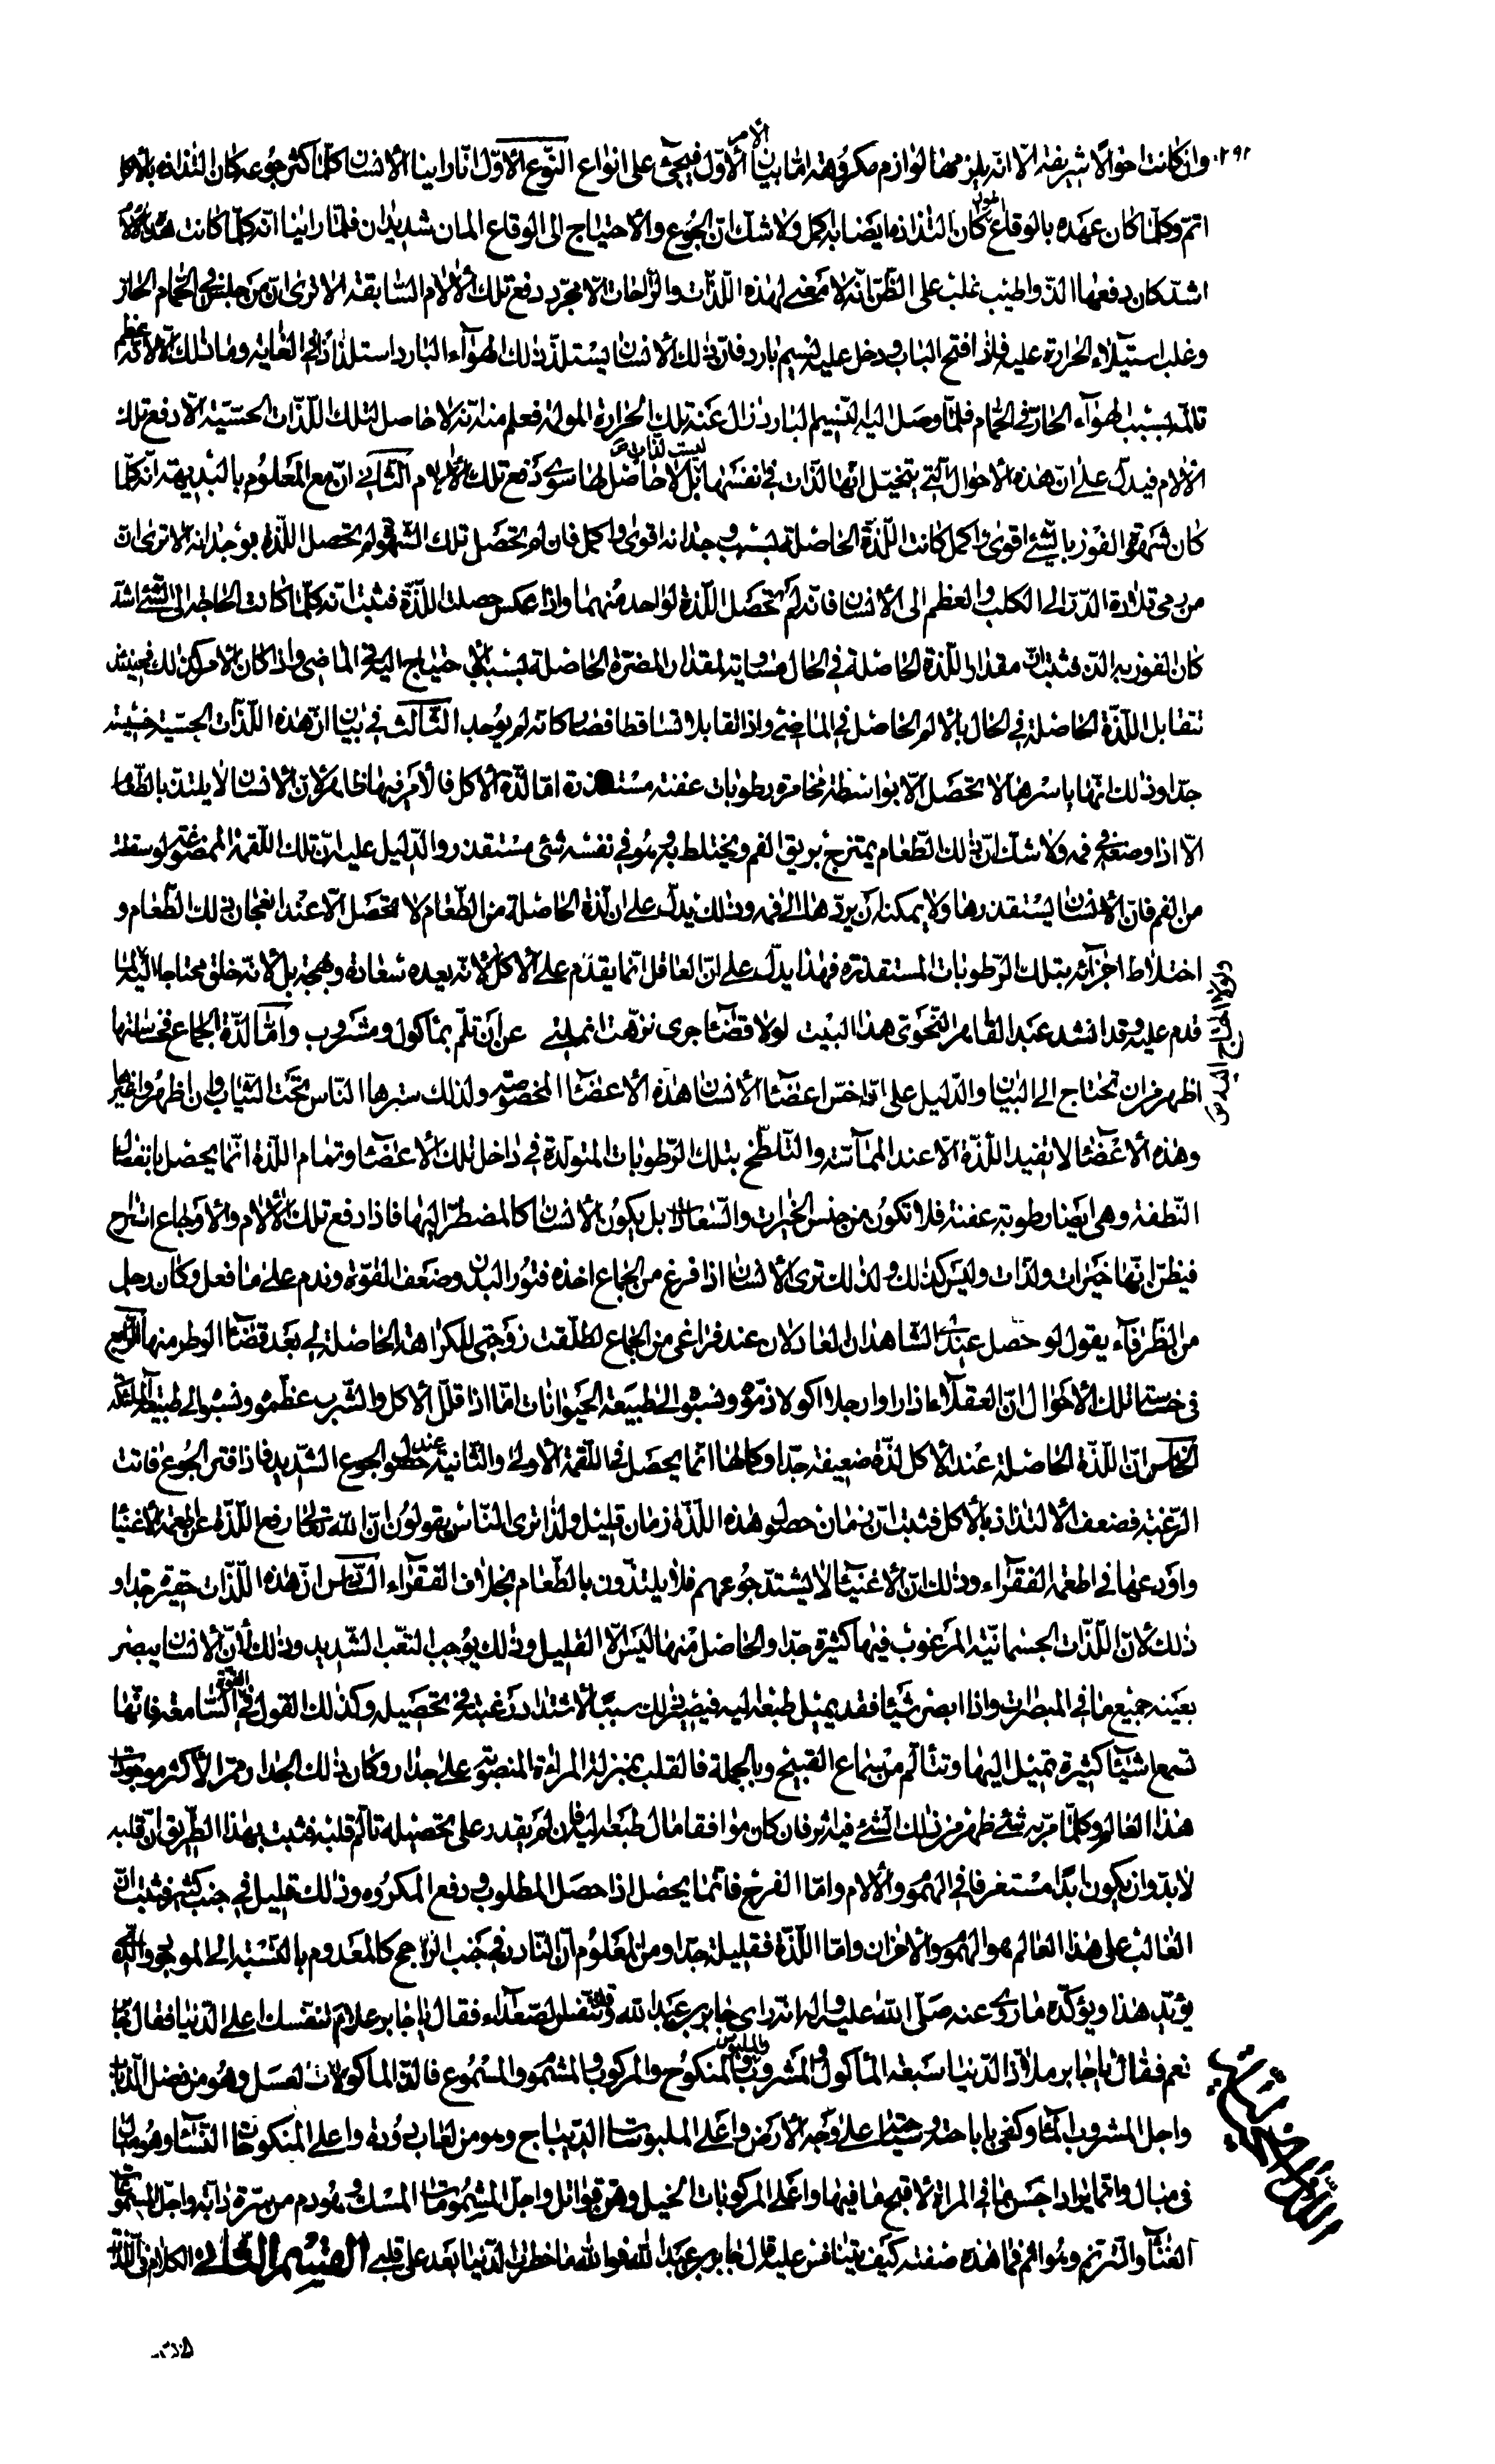 ٢٩٢
وان كانت احوالا شريفة الا انه يلزمها لوازم مكروهة اما بيان الأمر الاول فيجئ على انواع النوع الاول انا راينا الانسان كلما اكثر جوعه كان التذاذه بالاكل
اتم وكلما كان عهده بالوقاع اطول كان التذاذه ايضا به اكمل ولا شك ان الجوع والاحتياج الى الوقاع المان شديدان فلما راينا انه كلما كانت هذه الالام
اشد كان دفعها الذ واطيب غلب على الظن انه لا معنى لهذه اللذات والراحات الا مجرد دفع تلك الالام السابقة الا ترى ان من جلس في الحمام الحار
وغلب استيلاء الحرارة عليه فاذا فتح الباب ودخل عليه نسيم بارد فان ذلك الانسان يستلذ ذلك الهواء البارد استلذاذا في الغاية وما ذلك الا لانه عظم
تألمه بسبب الهواء الحار في الحمام فلما وصل اليه النسيم البارد زال عنه تلك الحرارة المولمة فعلم منه انه لا حاصل لتلك اللذات الحسية الا دفع تلك
الالام فيدل على ان هذه الاحوال التي يتخيل انها لذات في نفسها ليست لذات بل لا حاصل لها سوى دفع تلك الالام الثاني ان مع المعلوم بالبديهة انه كلما
كان شهوة الفوز بالشئ اقوى واكمل كانت اللذة الحاصلة بسبب وجدانه اقوى واكمل فان لم يحصل تلك الشهوة لم يحصل اللذة بوجدانه الا ترى ان
من رمى قلادة الدر الى الكلب والعظم الى الانسان فانه لم تحصل اللذة لواحد منهما واذا عكس حصلت اللذة فثبت انه كلما كانت الحاجة الى الشئ اشد
كان الفوز به الذ فثبت ان مقدار اللذة الحاصلة في الحال مساوية لمقدار المضرة الحاصلة بسبب الاحتياج اليه في الماضى واذا كان الامر كذلك فحينئذ
تتقابل اللذة الحاصلة في الحال بالالم الحاصل في الماضى واذا تقابلا تساقطا فصار كانه لم يوجد الثالث في بيان ان هذه اللذات الحسية خسيسة
جدا وذلك انها باسرها لا تحصل الا بواسطة مخامرة رطوبات عفنة مستقذرة اما لذة الاكل فالامر فيها ظاهر لان الانسان لا يلتذ بالطعام
الا اذا وضعه في فمه ولا شك ان ذلك الطعام يمتزج بريق الفم ويختلط به وهو في نفسه شئ مستقذر والدليل عليه ان تلك اللقمة الممضوغة لو سقطت
من الفم فان الانسان يستقذرها ولا يمكنه ان يردها الى فمه وذلك يدل على ان لذة الحاصلة من الطعام لا تحصل الا عند انعجان ذلك الطعام و
اختلاط اجزائه بتلك الرطوبات المستقذرة فهذا يدل على ان العاقل انما يقدم على الاكل لا لانه يعده سعادة وبهجة بل لانه خلق محتاجا اليه لما
قدم عليه وقد انشد عبد القاهر النحوى هذا البيت لولا قضاء جرى نزهت انملتى عن ان تلم بماكول ومشروب واما لذة الجماع فخساستها
ولولا احتياج اليه لما
اظهر من ان تحتاج الى البيان والدليل على ان اخس اعضاء الانسان هذه الاعضاء المخصوصة ولذلك سترها الناس تحت الثياب
وهذه الاعضاء لا يفيد اللذة الا عند المماسة والتلطخ بتلك الرطوبات المتولدة في داخل تلك الاعضاء وتمام اللذة انما يحصل بانفصال
النطفة وهى ايضا رطوبة عفنة فلا تكون من جنس الخيرات والسعادات بل يكون الانسان كالمضطر اليها فاذا دفع تلك الالام والاوجاع استراح
فيظن انها خيرات ولذات وليس كذلك ولذلك ترى الانسان اذا فرغ من الجماع اخذه فتور البدن وضعف القوة وندم على ما فعل وكان رجل
من الظرفاء يقول لو حصل عندى الشاهدان العادلان عند فراغى من الجماع لطلقت زوجتى للكراهة الحاصلة لى بعد قضاء الوطر منها الرابع
في خساسة تلك الاحوال ان العقلاء اذا راوا رجلا اكولا ذموه ونسبوه الى طبيعة الحيوانات اما اذا قلل الاكل والشرب عظموه ونسبوه الى طبيعة الملائكة
الخامس ان اللذة الحاصلة عند الاكل لذة ضعيفة جدا وكمالها انما يحصل في اللقمة الاولى والثانية عند حصول الجوع الشديد فاذا فتر الجوع فاتت
الرغبة فضعف الالتذاذ بالاكل فثبت ان زمان حصول هذه اللذة زمان قليل ولذا ترى الناس يقولون ان الله تعالى رفع اللذة عن اطعمة الاغنياء
واودعها في اطعمة الفقراء وذلك ان الاغنياء لا يشتد جوعهم فلا يلتذون بالطعام بخلاف الفقراء السادس ان هذه اللذات حقيرة جدا و
ذلك لان اللذات الجسمانية المرغوب فيها كثيرة جدا والحاصل منها ليس الا القليل وذلك يوجب التعب الشديد وذلك لان الانسان يبصر
بعينه جميع ما في المبصرات واذا ابصر شيئا فقد يميل طبعه اليه فيصير ذلك سببا لاشتداد رغبته في تحصيله وكذلك القول في القوة السامعة فانها
تسمع اشياء كثيرة تميل اليها وتتألم من سماع القبيح وبالجملة فالقلب بمنزلة المراة المنصوبة على جدار وكان ذلك الجدار ممر الاكثر موجودات
هذا العالم وكلما مر به شئ ظهر من ذلك الشئ فيه اثر فان كان موافقا مال طبعه اليه فان لم يقدر على تحصيله تألم قلبه فثبت بهذا الطريق ان قلبه
لا بد وان يكون ابدا مستغرقا في الهموم والالام واما الفرح فانما يحصل اذا حصل المطلوب ودفع المكروه وذلك قليل في جنب كثير فثبت ان
الغالب على هذا العالم هو الهموم والاحزان واما اللذة فقليلة جدا ومن المعلوم ان النادر في جنب الراجح كالمعدوم بالنسبة الى الموجود والذى
يؤيد هذا ويؤكده ما روى عنه صلى الله عليه واله انه راى جابر بن عبد الله وقد تنفس الصعداء فقال يا جابر علام تنفسك اعلى الدنيا فقال جابر
نعم فقال يا جابر ملاذ الدنيا سبعة الماكول والمشروب والملبوس والمنكوح والمركوب والمشموم والمسموع فالذ الماكولات العسل وهو من فضل الذباب
واجل المشروب الماء وكفى باباحته وسباحته على وجه الارض واعلى الملبوسات الديباج وهو من لعاب دودة واعلى المنكوحات النساء وهو مبال
في مبال وانما يراد احسن ما في المراة لاقبح ما فيها واعلى المركوبات الخيل وهن قواتل واجل المشمومات المسك وهو دم من سرة دابة واجل المسموعات
الغناء والترنم وهو اثم فما هذه صفته كيف يتنافس عليه قال جابر بن عبد الله فوالله ما خطرت الدنيا بعد على قلبى القسم الثانى الكلام في اللذات